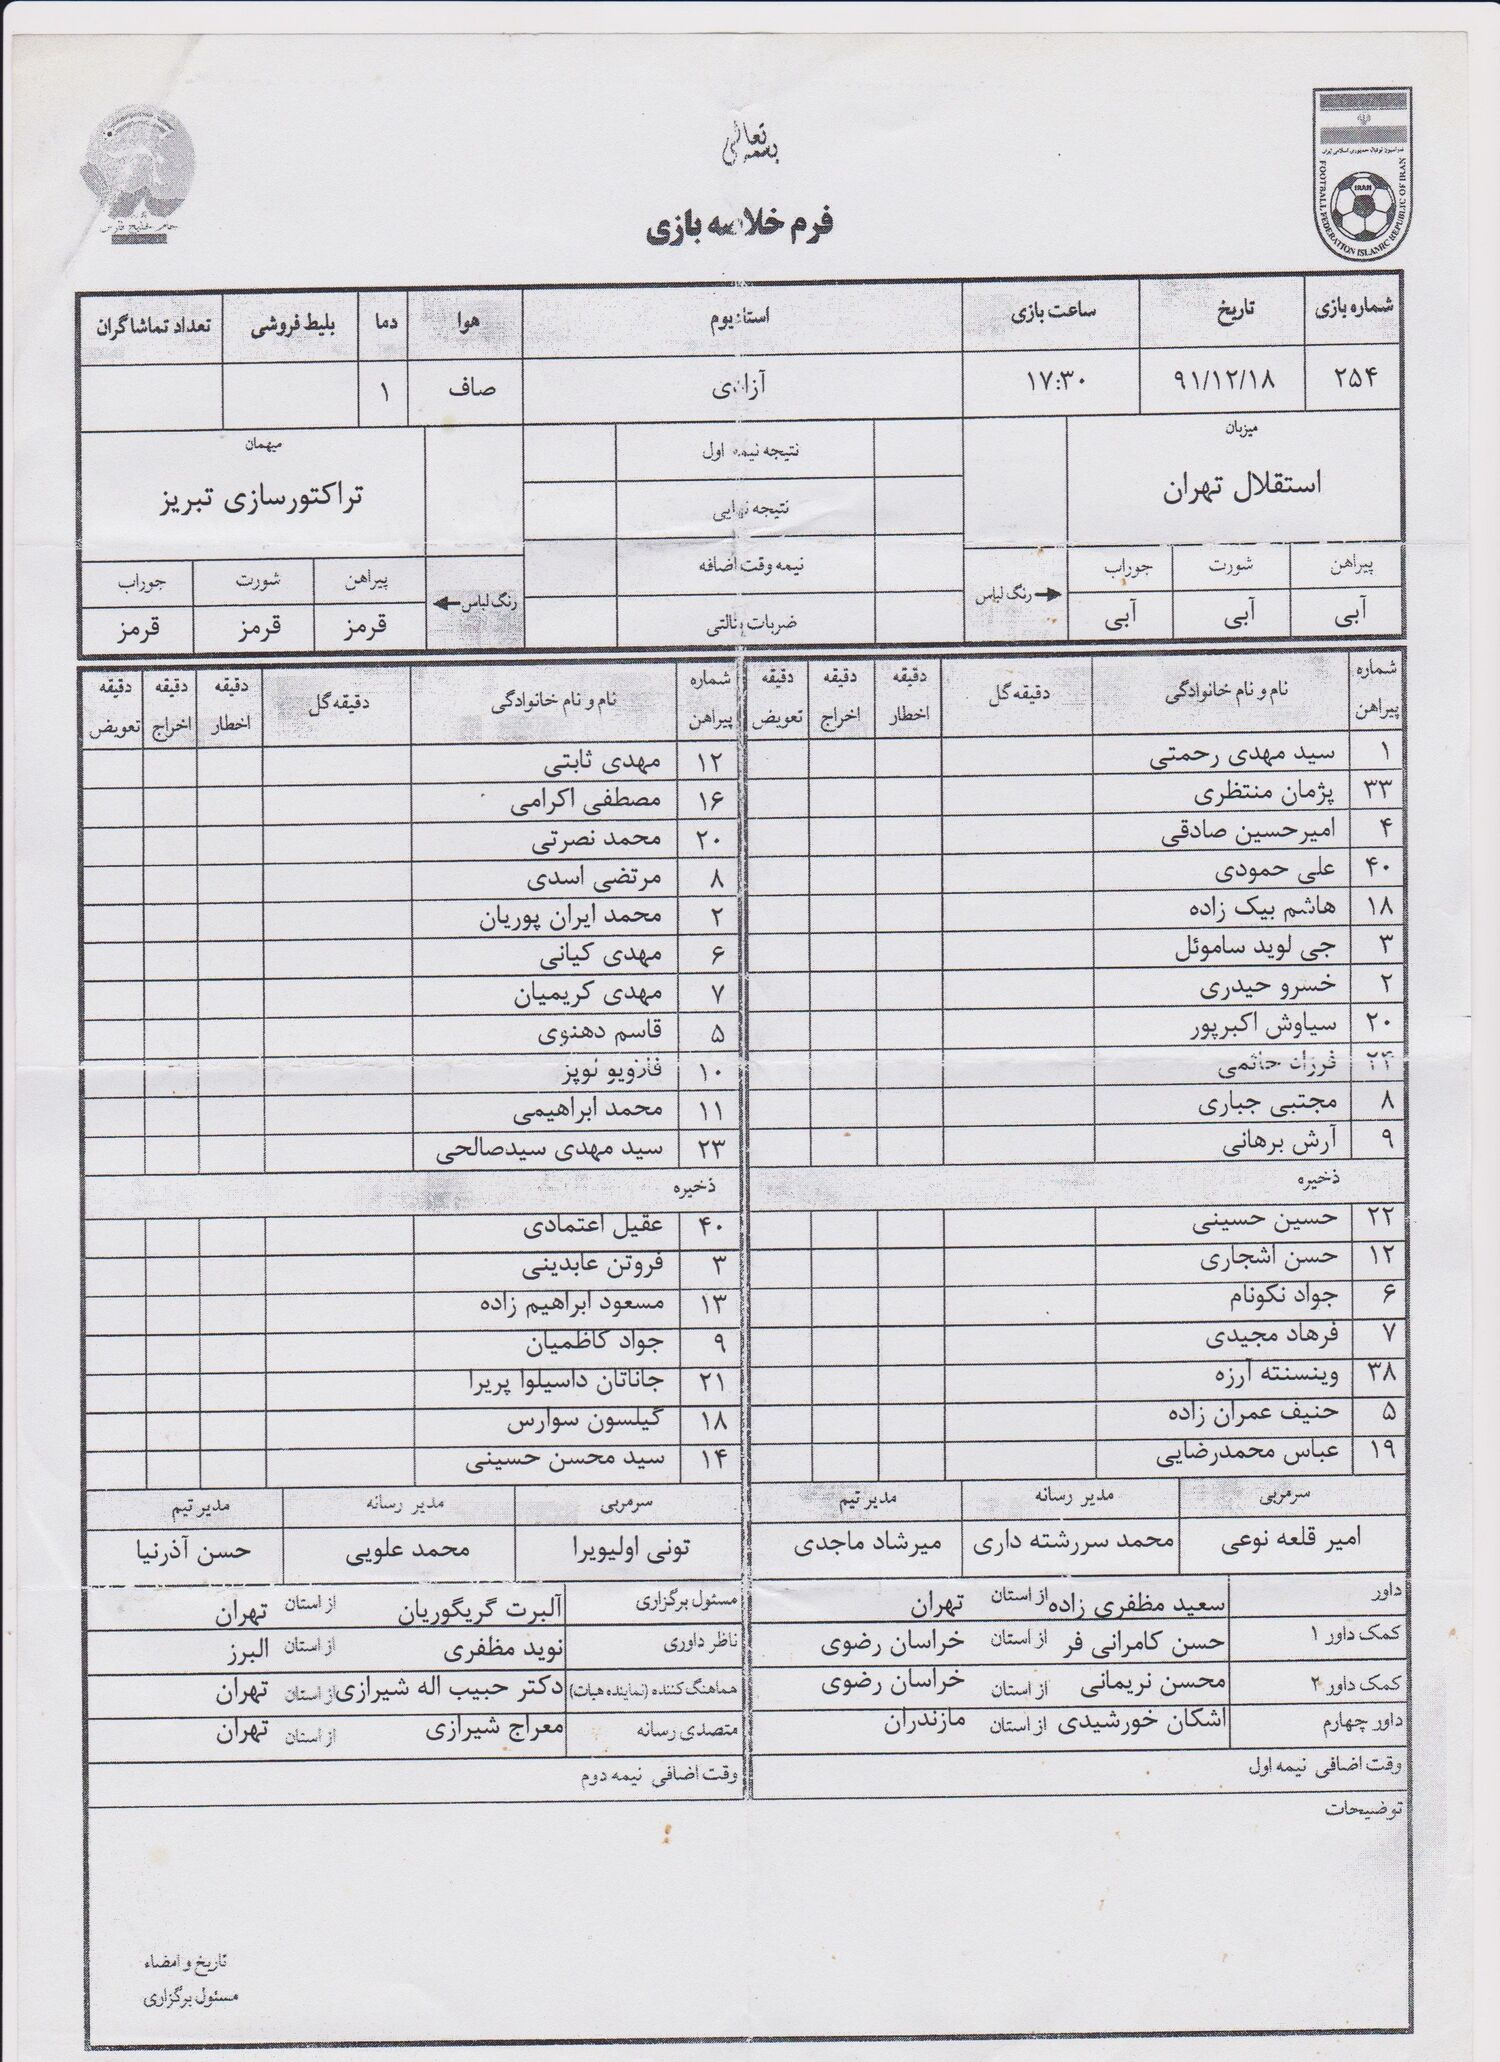 بسمه تعالی
فرم خلاصه بازی
FOOTBALL FEDERATION ISLAMIC REPUBLIC OF IRAN
IRAN
شماره بازی تاریخ ساعت بازی استادیوم هوا دما بلیط فروشی تعداد تماشاگران
۲۵۴ ۹۱/۱۲/۱۸ ۱۷:۳۰ آزادی صاف ۱
میزبان
استقلال تهران
پیراهن شورت جوراب
آبی آبی آبی
رنگ لباس
نتیجه نیمه اول
نتیجه نهایی
نیمه وقت اضافه
ضربات پنالتی
میهمان
تراکتورسازی تبریز
رنگ لباس
پیراهن شورت جوراب
قرمز قرمز قرمز
شماره پیراهن نام و نام خانوادگی دقیقه گل دقیقه اخطار دقیقه اخراج دقیقه تعویض
۱ سید مهدی رحمتی
۳۳ پژمان منتظری
۴ امیرحسین صادقی
۴۰ علی حمودی
۱۸ هاشم بیک زاده
۳ جی لوید ساموئل
۲ خسرو حیدری
۲۰ سیاوش اکبرپور
۲۴ فرزاد حاتمی
۸ مجتبی جباری
۹ آرش برهانی
ذخیره
۲۲ حسین حسینی
۱۲ حسن اشجاری
۶ جواد نکونام
۷ فرهاد مجیدی
۳۸ وینسنته آرزه
۵ حنیف عمران زاده
۱۹ عباس محمدرضایی
سرمربی مدیر رسانه مدیر تیم
امیر قلعه نوعی محمد سررشته داری میرشاد ماجدی
شماره پیراهن نام و نام خانوادگی دقیقه گل دقیقه اخطار دقیقه اخراج دقیقه تعویض
۱۲ مهدی ثابتی
۱۶ مصطفی اکرامی
۲۰ محمد نصرتی
۸ مرتضی اسدی
۲ محمد ایران پوریان
۶ مهدی کیانی
۷ مهدی کریمیان
۵ قاسم دهنوی
۱۰ فلاویو لوپز
۱۱ محمد ابراهیمی
۲۳ سید مهدی سیدصالحی
ذخیره
۴۰ عقیل اعتمادی
۳ فروتن عابدینی
۱۳ مسعود ابراهیم زاده
۹ جواد کاظمیان
۲۱ جاناتان داسیلوا پریرا
۱۸ گیلسون سوارس
۱۴ سید محسن حسینی
سرمربی مدیر رسانه مدیر تیم
تونی اولیویرا محمد علویی حسن آذرنیا
داور سعید مظفری زاده از استان تهران
کمک داور ۱ حسن کامرانی فر از استان خراسان رضوی
کمک داور ۲ محسن نریمانی از استان خراسان رضوی
داور چهارم اشکان خورشیدی از استان مازندران
وقت اضافی نیمه اول
مسئول برگزاری آلبرت گریگوریان از استان تهران
ناظر داوری نوید مظفری از استان البرز
هماهنگ کننده (نماینده هیات) دکتر حبیب اله شیرازی از استان تهران
متصدی رسانه معراج شیرازی از استان تهران
وقت اضافی نیمه دوم
توضیحات
تاریخ و امضاء
مسئول برگزاری